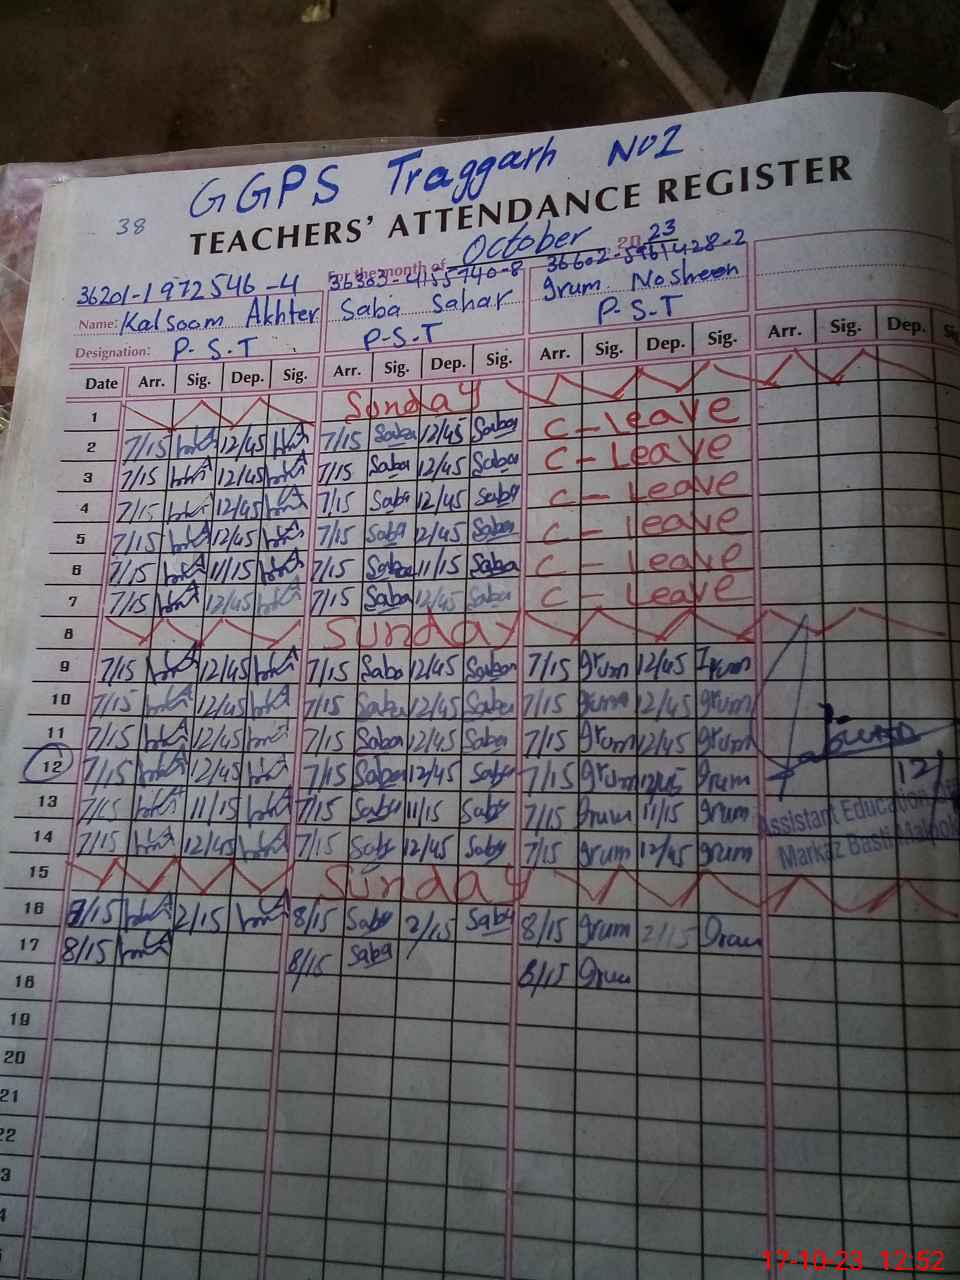 GGPS Traggarh No 2
38
TEACHERS' ATTENDANCE REGISTER
For the month of October 2023
36201-1972546-4 36303-4155740-8 36602-5961428-2
Name: Kalsoom Akhter Saba Sahar Irum Nosheen
Designation: P-S-T P-S-T P-S-T
Date Arr. Sig. Dep. Sig. Arr. Sig. Dep. Sig. Arr. Sig. Dep. Sig. Arr. Sig. Dep.
1 Sunday
2 7/15 12/45 7/15 Saba 12/45 Saba C-Leave
3 7/15 12/45 7/15 Saba 12/45 Saba C-Leave
4 7/15 12/45 7/15 Saba 12/45 Saba C-Leave
5 7/15 12/45 7/15 Saba 12/45 Saba C-Leave
6 7/15 11/15 7/15 Saba 11/15 Saba C-Leave
7 7/15 12/45 7/15 Saba 12/45 Saba C-Leave
8 Sunday
9 7/15 12/45 7/15 Saba 12/45 Saba 7/15 Irum 12/45 Irum
10 7/15 12/45 7/15 Saba 12/45 Saba 7/15 Irum 12/45 Irum
11 7/15 12/45 7/15 Saba 12/45 Saba 7/15 Irum 12/45 Irum
12 7/15 12/45 7/15 Saba 12/45 Saba 7/15 Irum 12/45 Irum 12/
13 7/15 11/15 7/15 Saba 11/15 Saba 7/15 Irum 11/15 Irum
Assistant Education
14 7/15 12/45 7/15 Saba 12/45 Saba 7/15 Irum 12/45 Irum
Markaz Basti
15 Sunday
16 8/15 2/15 8/15 Saba 2/15 Saba 8/15 Irum 2/15 Irum
17 8/15 8/15 Saba 8/15 Irum
18
19
20
21
22
3
4
17-10-23 12:52